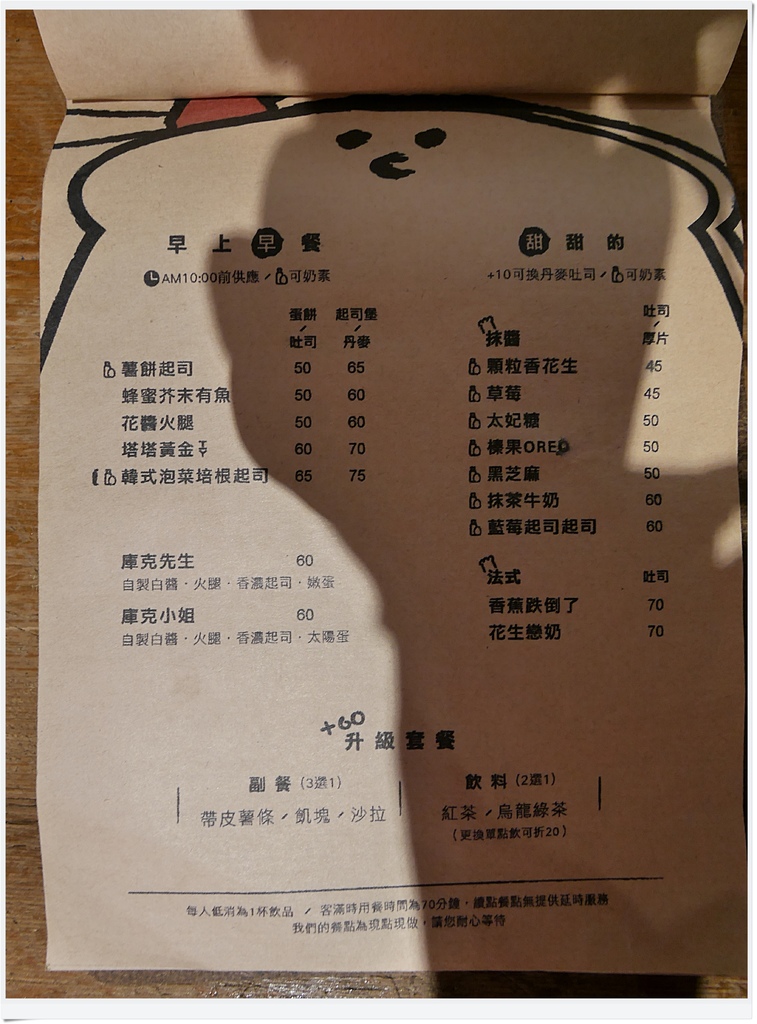 早上早餐
AM10:00前供應／可奶素
蛋餅／吐司 起司堡／丹麥
薯餅起司 50 65
蜂蜜芥末有魚 50 60
花醬火腿 50 60
塔塔黃金 60 70
韓式泡菜培根起司 65 75
庫克先生 60
自製白醬・火腿・香濃起司・嫩蛋
庫克小姐 60
自製白醬・火腿・香濃起司・太陽蛋
甜甜的
+10可換丹麥吐司／可奶素
抹醬 吐司／厚片
顆粒香花生 45
草莓 45
太妃糖 50
榛果OREO 50
黑芝麻 50
抹茶牛奶 60
藍莓起司起司 60
法式 吐司
香蕉跌倒了 70
花生戀奶 70
+60
升級套餐
副餐（3選1）
帶皮薯條／飢塊／沙拉
飲料（2選1）
紅茶／烏龍綠茶
（更換單點飲可折20）
每人低消為1杯飲品 ／ 客滿時用餐時間為70分鐘，續點餐點無提供延時服務
我們的餐點為現點現做，請您耐心等待